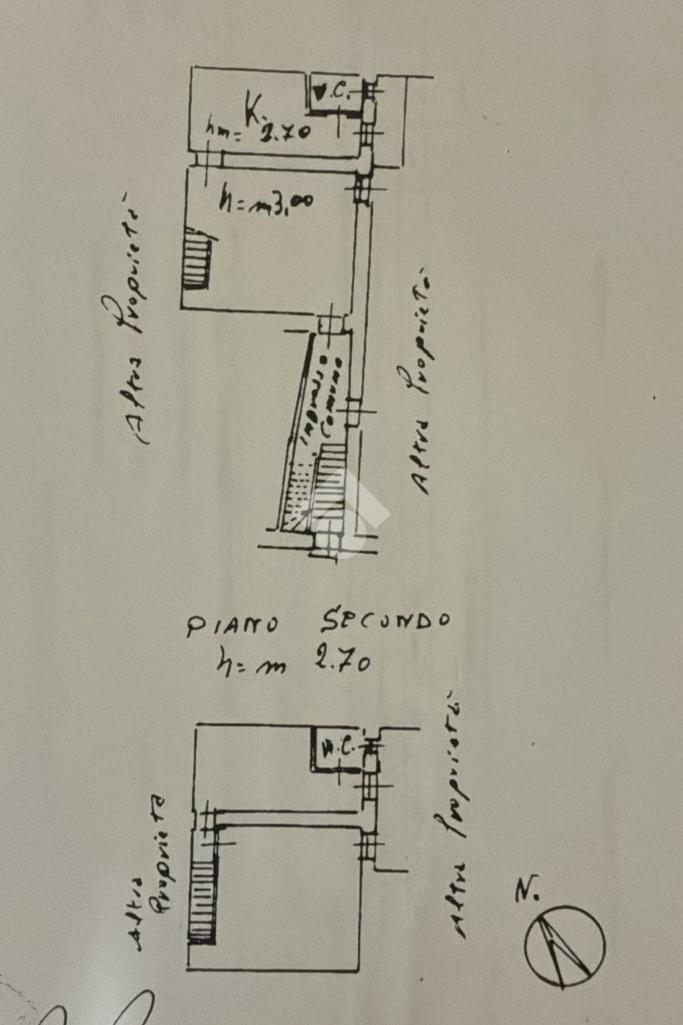 W.C.
K.
hm= 2.70
h=m3,00
Altra Proprietà
Altra Proprietà
INGRESSO
COMUNE
PIANO SECONDO
h=m 2.70
W.C.
Altra
Proprietà
Altra Proprietà
N.